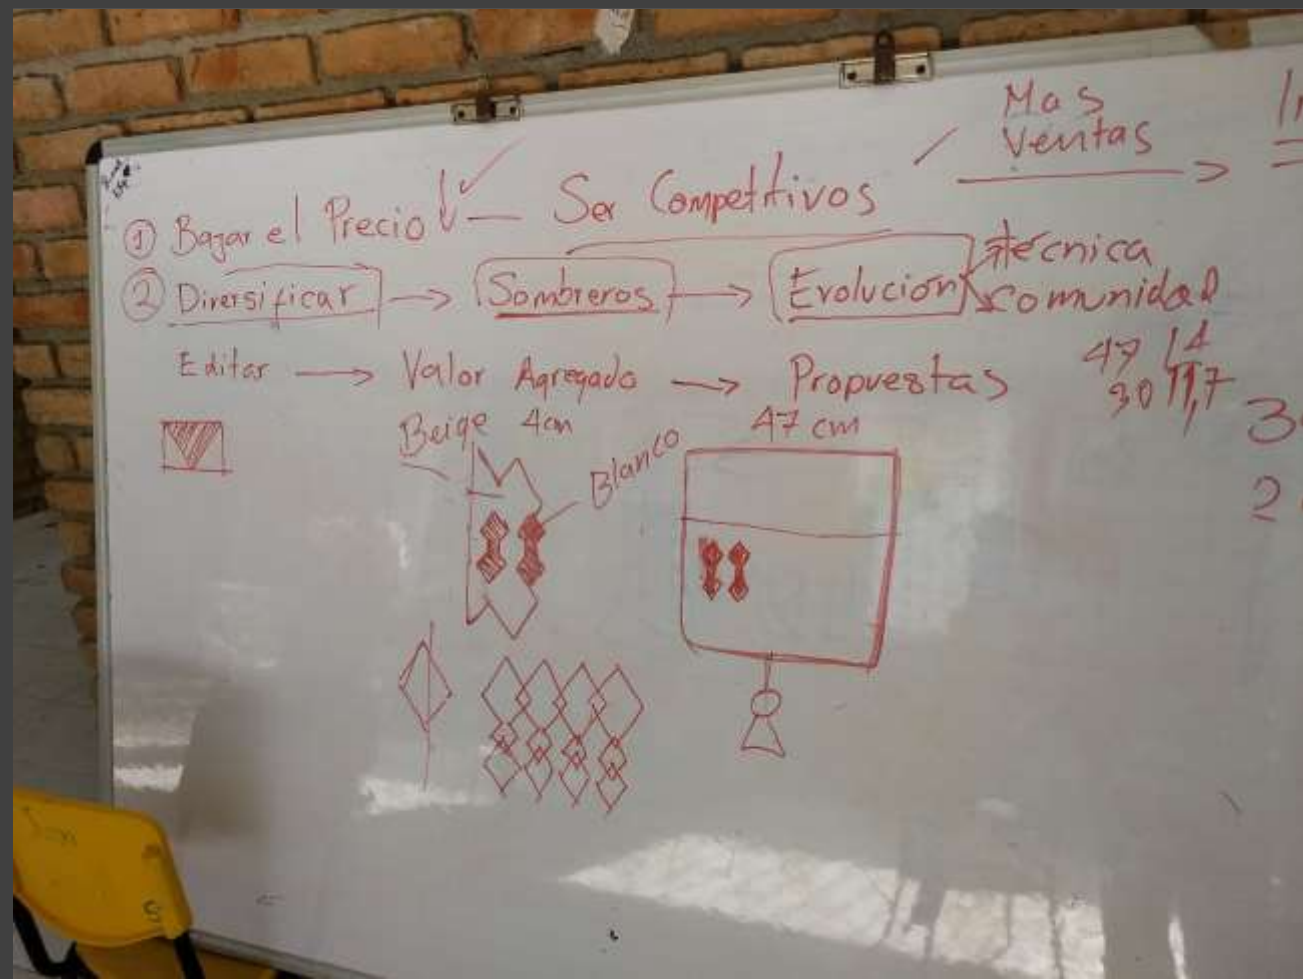 Mas
Ventas
① Bajar el Precio ↓ — Ser Competitivos
② Diversificar → Sombreros → Evolución técnica
comunidad
Editar → Valor Agregado → Propuestas
47 14
30 11,7
Beige 4cm
Blanco
47 cm
3
2